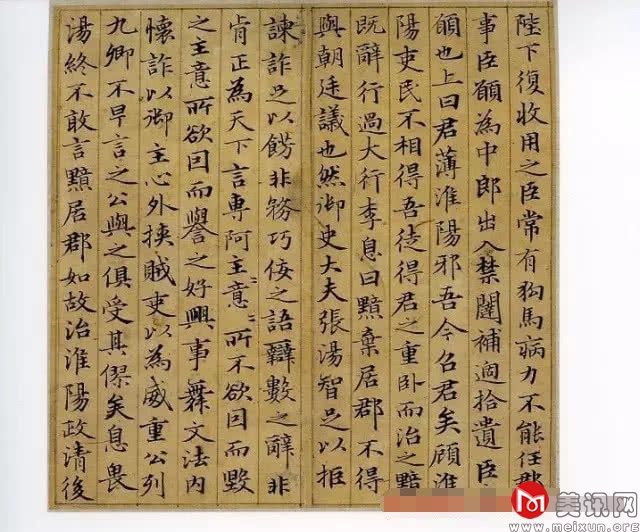 陛下復收用之臣常有狗馬病力不能任郡
事臣願為中郎出入禁闥補過拾遺臣
願也上曰君薄淮陽邪吾今召君矣顧淮
陽吏民不相得吾徒得君之重卧而治之黯
既辭行過大行李息曰黯棄居郡不得
與朝廷議也然御史大夫張湯智足以拒
諫詐足以飾非務巧佞之語辯數之辭非
肯正為天下言專阿主意〻所不欲因而毀
之主意所欲因而譽之好興事舞文法內
懷詐以御主心外挾賊吏以為威重公列
九卿不早言之公與之俱受其僇矣息畏
湯終不敢言黯居郡如故治淮陽政清後
美讯网
www.meixun.org